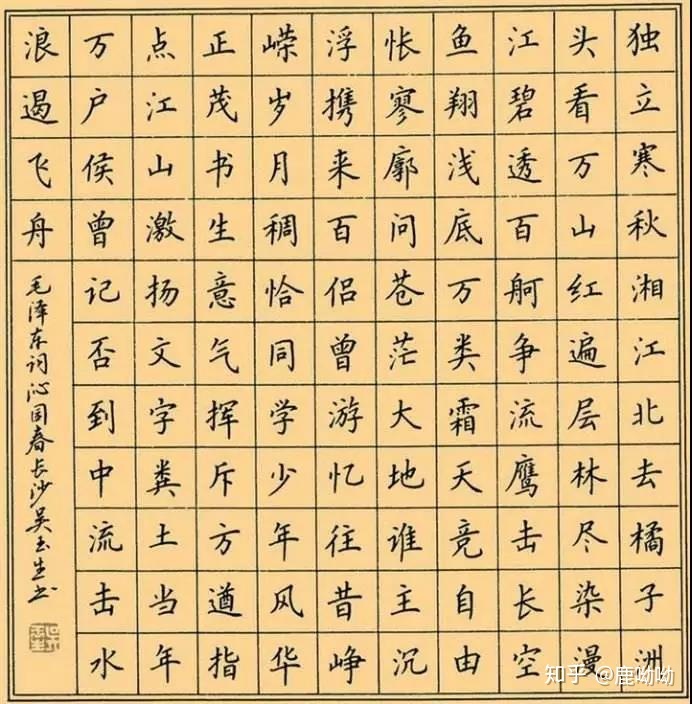 独立寒秋湘江北去橘子洲
头看万山红遍层林尽染漫
江碧透百舸争流鹰击长空
鱼翔浅底万类霜天竞自由
怅寥廓问苍茫大地谁主沉
浮携来百侣曾游忆往昔峥
嵘岁月稠恰同学少年风华
正茂书生意气挥斥方遒指
点江山激扬文字粪土当年
万户侯曾记否到中流击水
浪遏飞舟
毛泽东词沁园春长沙吴玉生书
知乎 @鹿呦呦